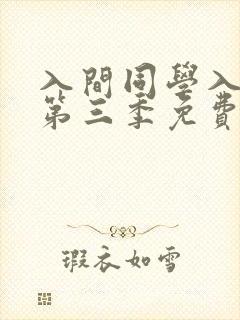 入間同學入
第三季免費
瑕衣如雪